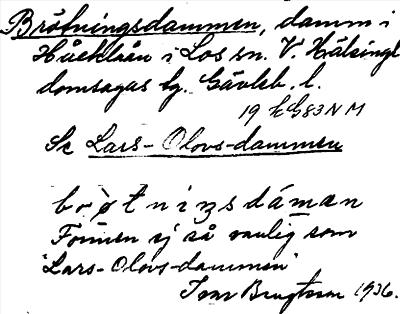 Brötningsdammen, damm i
Håcklaån i Los sn. V. Hälsingl.
domsagas tg. Gävleb. l.
19 G83NM
Se Lars-Olovs-dammen
bro̊tnizsdáman
Formen ej så vanlig som
"Lars-Olovs-dammen"
Ivar Bengtsson 1936.